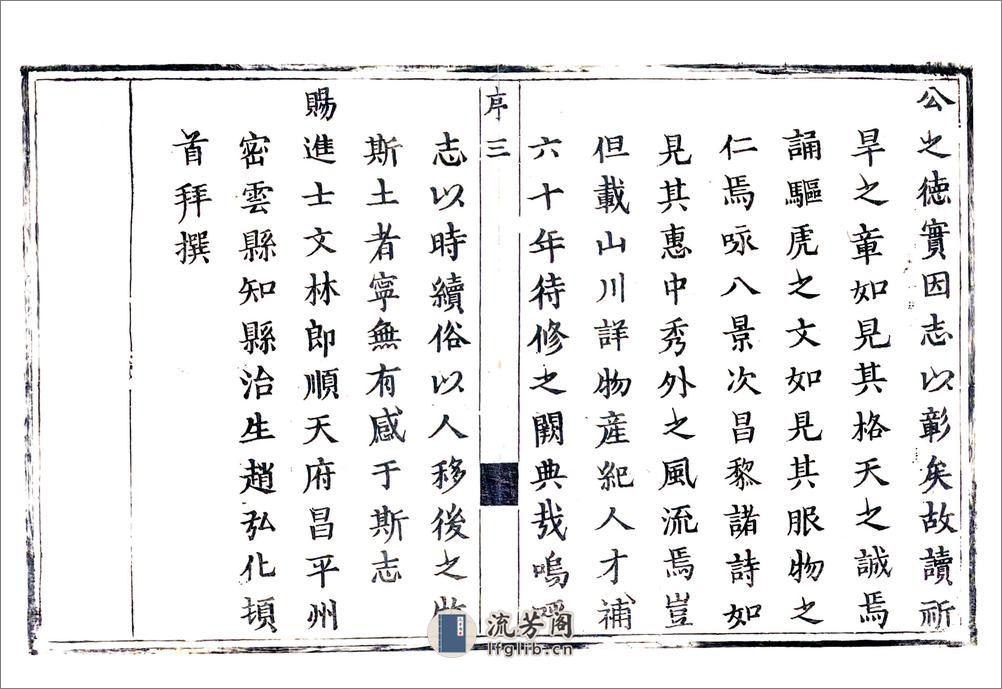 公之德實因志以彰矣故讀祈
旱之章如見其格天之誠焉
誦驅虎之文如見其服物之
仁焉咏八景次昌黎諸詩如
見其惠中秀外之風流焉豈
但載山川詳物產紀人才補
六十年待修之闕典哉嗚
序 三
志以時續俗以人移後之
斯土者寧無有感于斯志
賜進士文林郎順天府昌平州
密雲縣知縣治生趙弘化頓
首拜撰
流芳阁
lfglib.cn